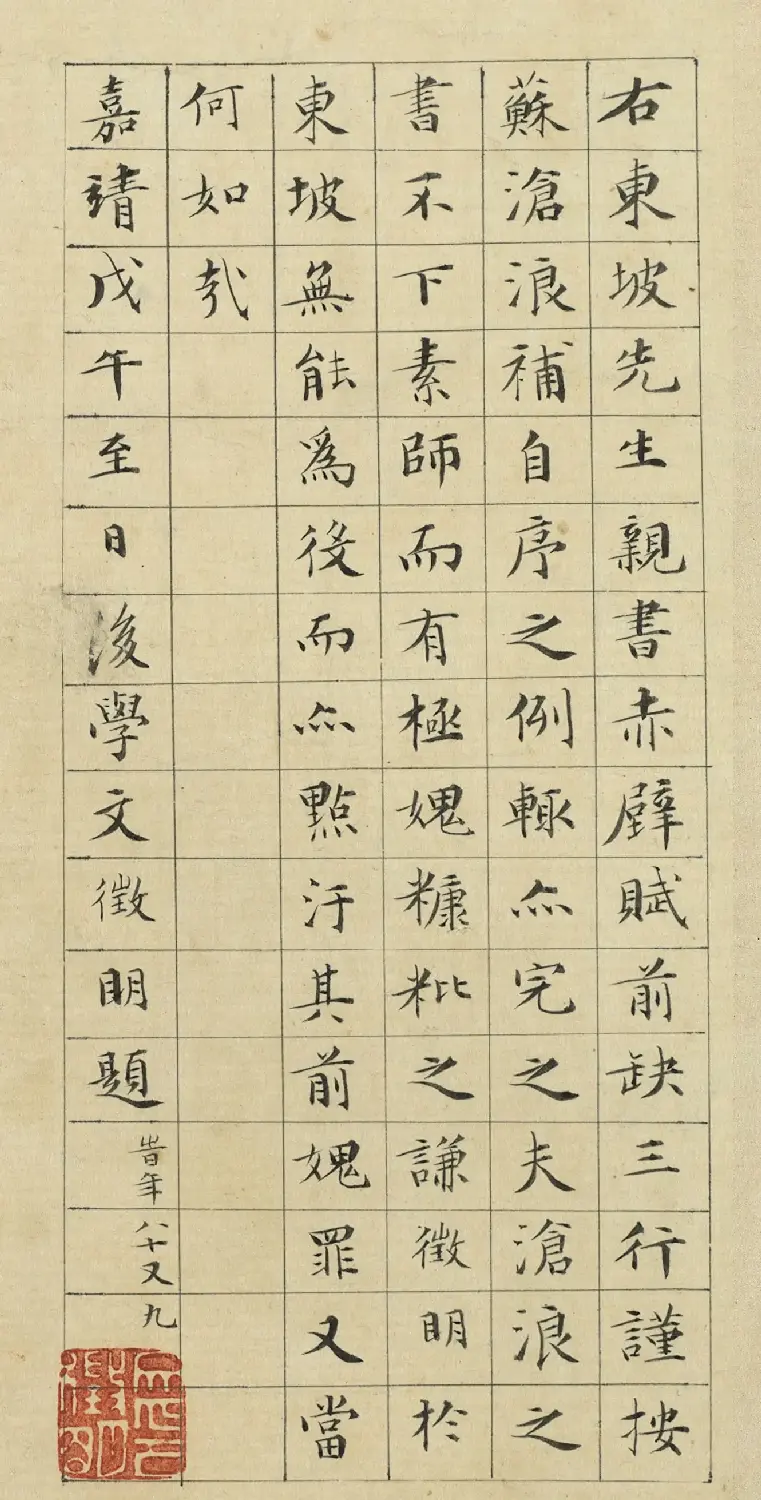 右東坡先生親書赤壁賦前缺三行謹按
蘇滄浪補自序之例輙亦完之夫滄浪之
書不下素師而有極媿糠粃之謙徵明於
東坡無能爲役而亦點汙其前媿罪又當
何如哉
嘉靖戊午至日後學文徵明題
旹年八十又九